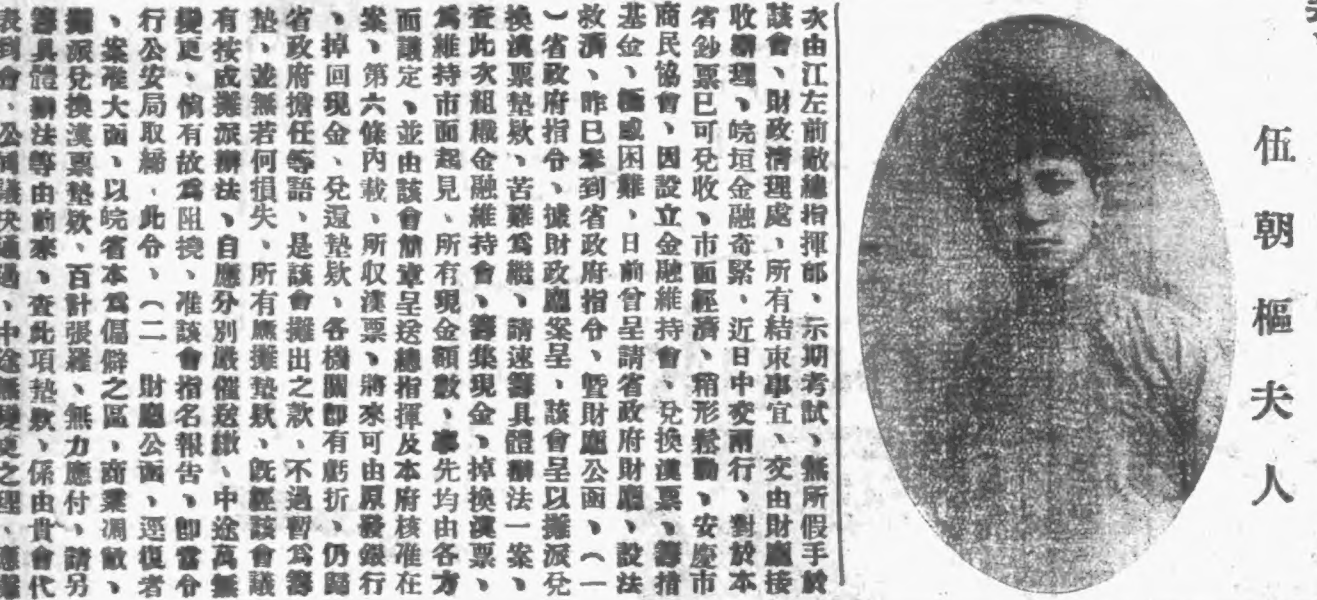 伍朝樞夫人
次由江左前敵總指揮部、示期考試、無所假手於
該會、財政清理處、所有結束事宜、交由財廳接
收辦理、皖垣金融奇緊、近日中交兩行、對於本
省鈔票已可兌收、市面經濟、稍形鬆動、安慶市
商民協會、因設立金融維持會、兌換漢票、籌措
基金、極感困難、日前曾呈請省政府財廳、設法
救濟、昨已奉到省政府指令、暨財廳公函、(一
)省政府指令、據財政廳案呈、該會呈以攤派兌
換漢票墊欵、苦難爲繼、請速籌具體辦法一案、
查此次組織金融維持會、籌集現金、掉換漢票、
爲維持市面起見、所有現金額數、事先均由各方
面議定、並由該會簡章呈送總指揮及本府核准在
案、第六條內載、所収漢票、將來可由原發銀行
、掉回現金、兌還墊欵、各機關卽有虧折、仍歸
省政府擔任等語、是該會攤出之款、不過暫爲籌
墊、並無若何損失、所有應攤墊欵、旣經該會議
有按成攤派辦法、自應分別嚴催送繳、中途萬無
變更、倘有故爲阻撓、准該會指名報告、卽當令
行公安局取締、此令、(二 財廳公函、逕復者
、案准大函、以皖省本爲偏僻之區、商業凋敝、
攤派兌換漢票墊欵、百計張羅、無力應付、請另
籌具體辦法等由前來、查此項墊欵、係由貴會代
表到會、公同議決通過、中途無變更之理、應